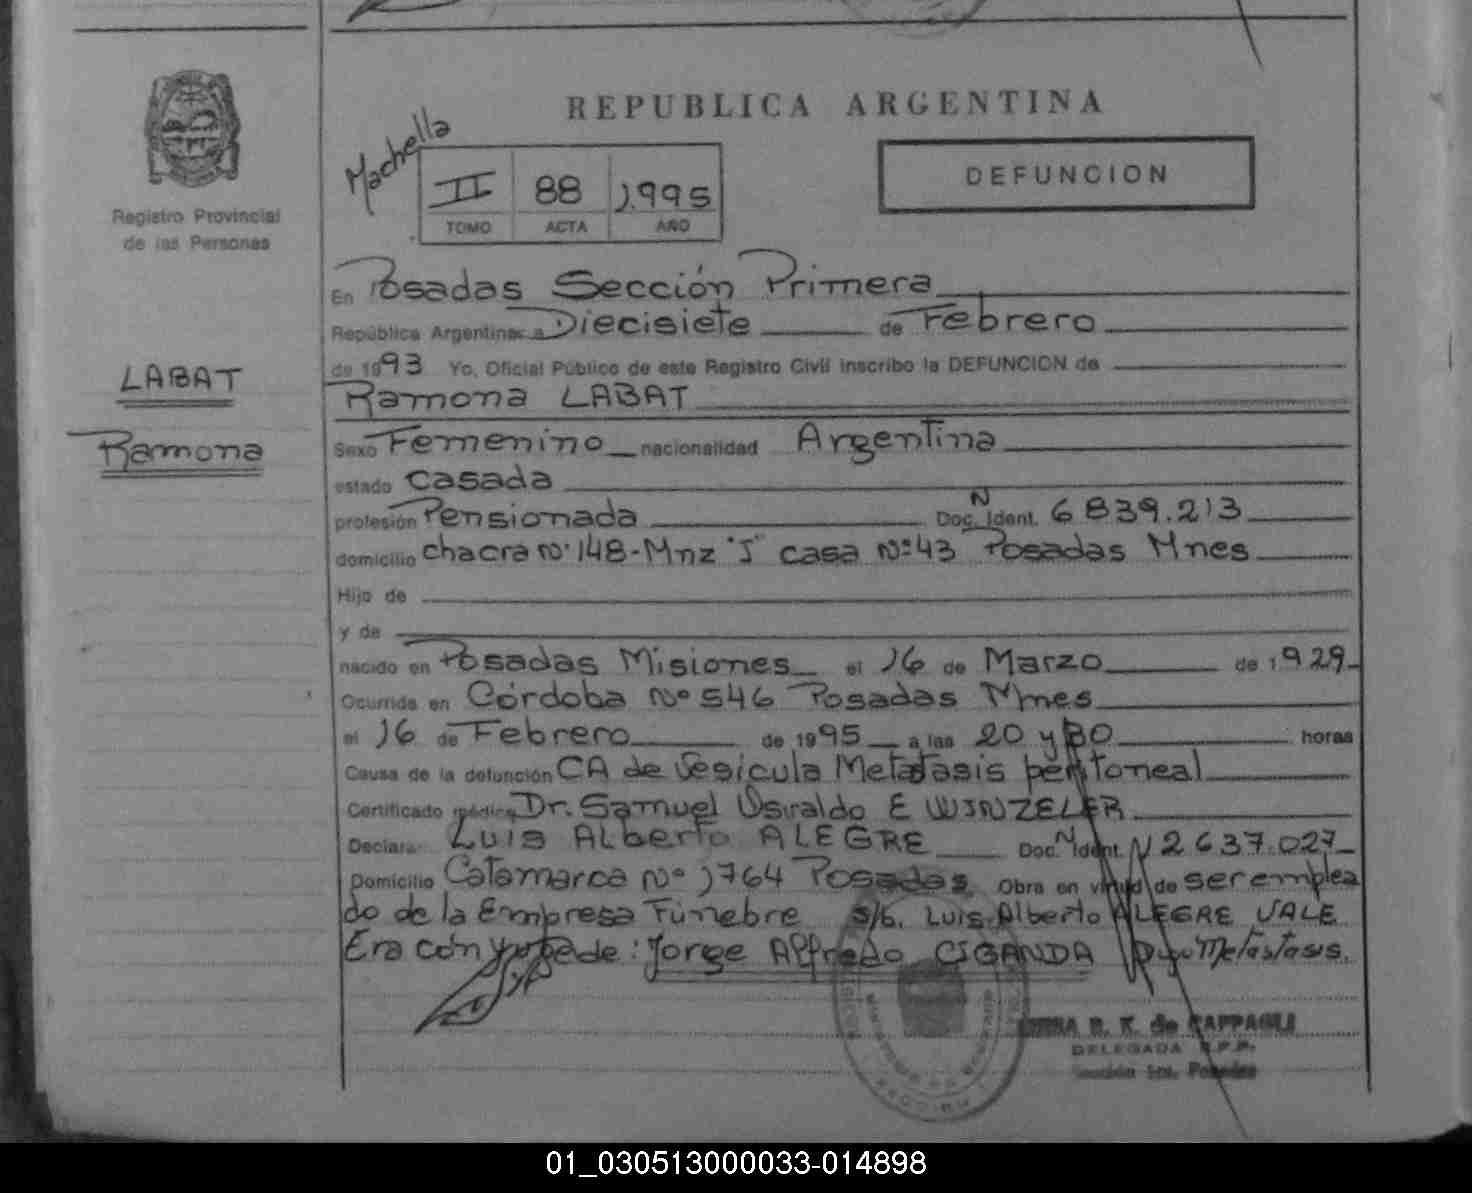 REPUBLICA ARGENTINA
Machella
II 88 1.995
TOMO ACTA AÑO
DEFUNCION
Registro Provincial
de las Personas
LABAT
Ramona
En Posadas Sección Primera
República Argentina a Diecisiete de Febrero
de 1993 Yo, Oficial Público de este Registro Civil inscribo la DEFUNCION de
Ramona LABAT
Sexo Femenino nacionalidad Argentina
estado casada
profesión Pensionada Doc. N Ident. 6839.213
domicilio chacra nº 148-Mnz "J" casa Nº 43 Posadas Mnes
Hijo de
y de
nacido en Posadas Misiones el 16 de Marzo de 1929
Ocurrida en Córdoba Nº 546 Posadas Mnes
el 16 de Febrero de 1995 a las 20 y 30 horas
Causa de la defunción CA de Vesicula Metatasis peritoneal
Certificado médico Dr. Samuel Osvaldo E WINZELER
Declara: Luis Alberto ALEGRE Doc. N Ident. 12637.027
Domicilio Catamarca Nº 1764 Posadas Obra en virtud de ser emplea
do de la Empresa Fúnebre s/b. Luis Alberto ALEGRE VALE
Era conyuge de: Jorge Alfredo CIGANDA Metástasis.
de CAPPAGLI
DELEGADA R.P.P.
Sección 1ra. Posadas
01_030513000033-014898